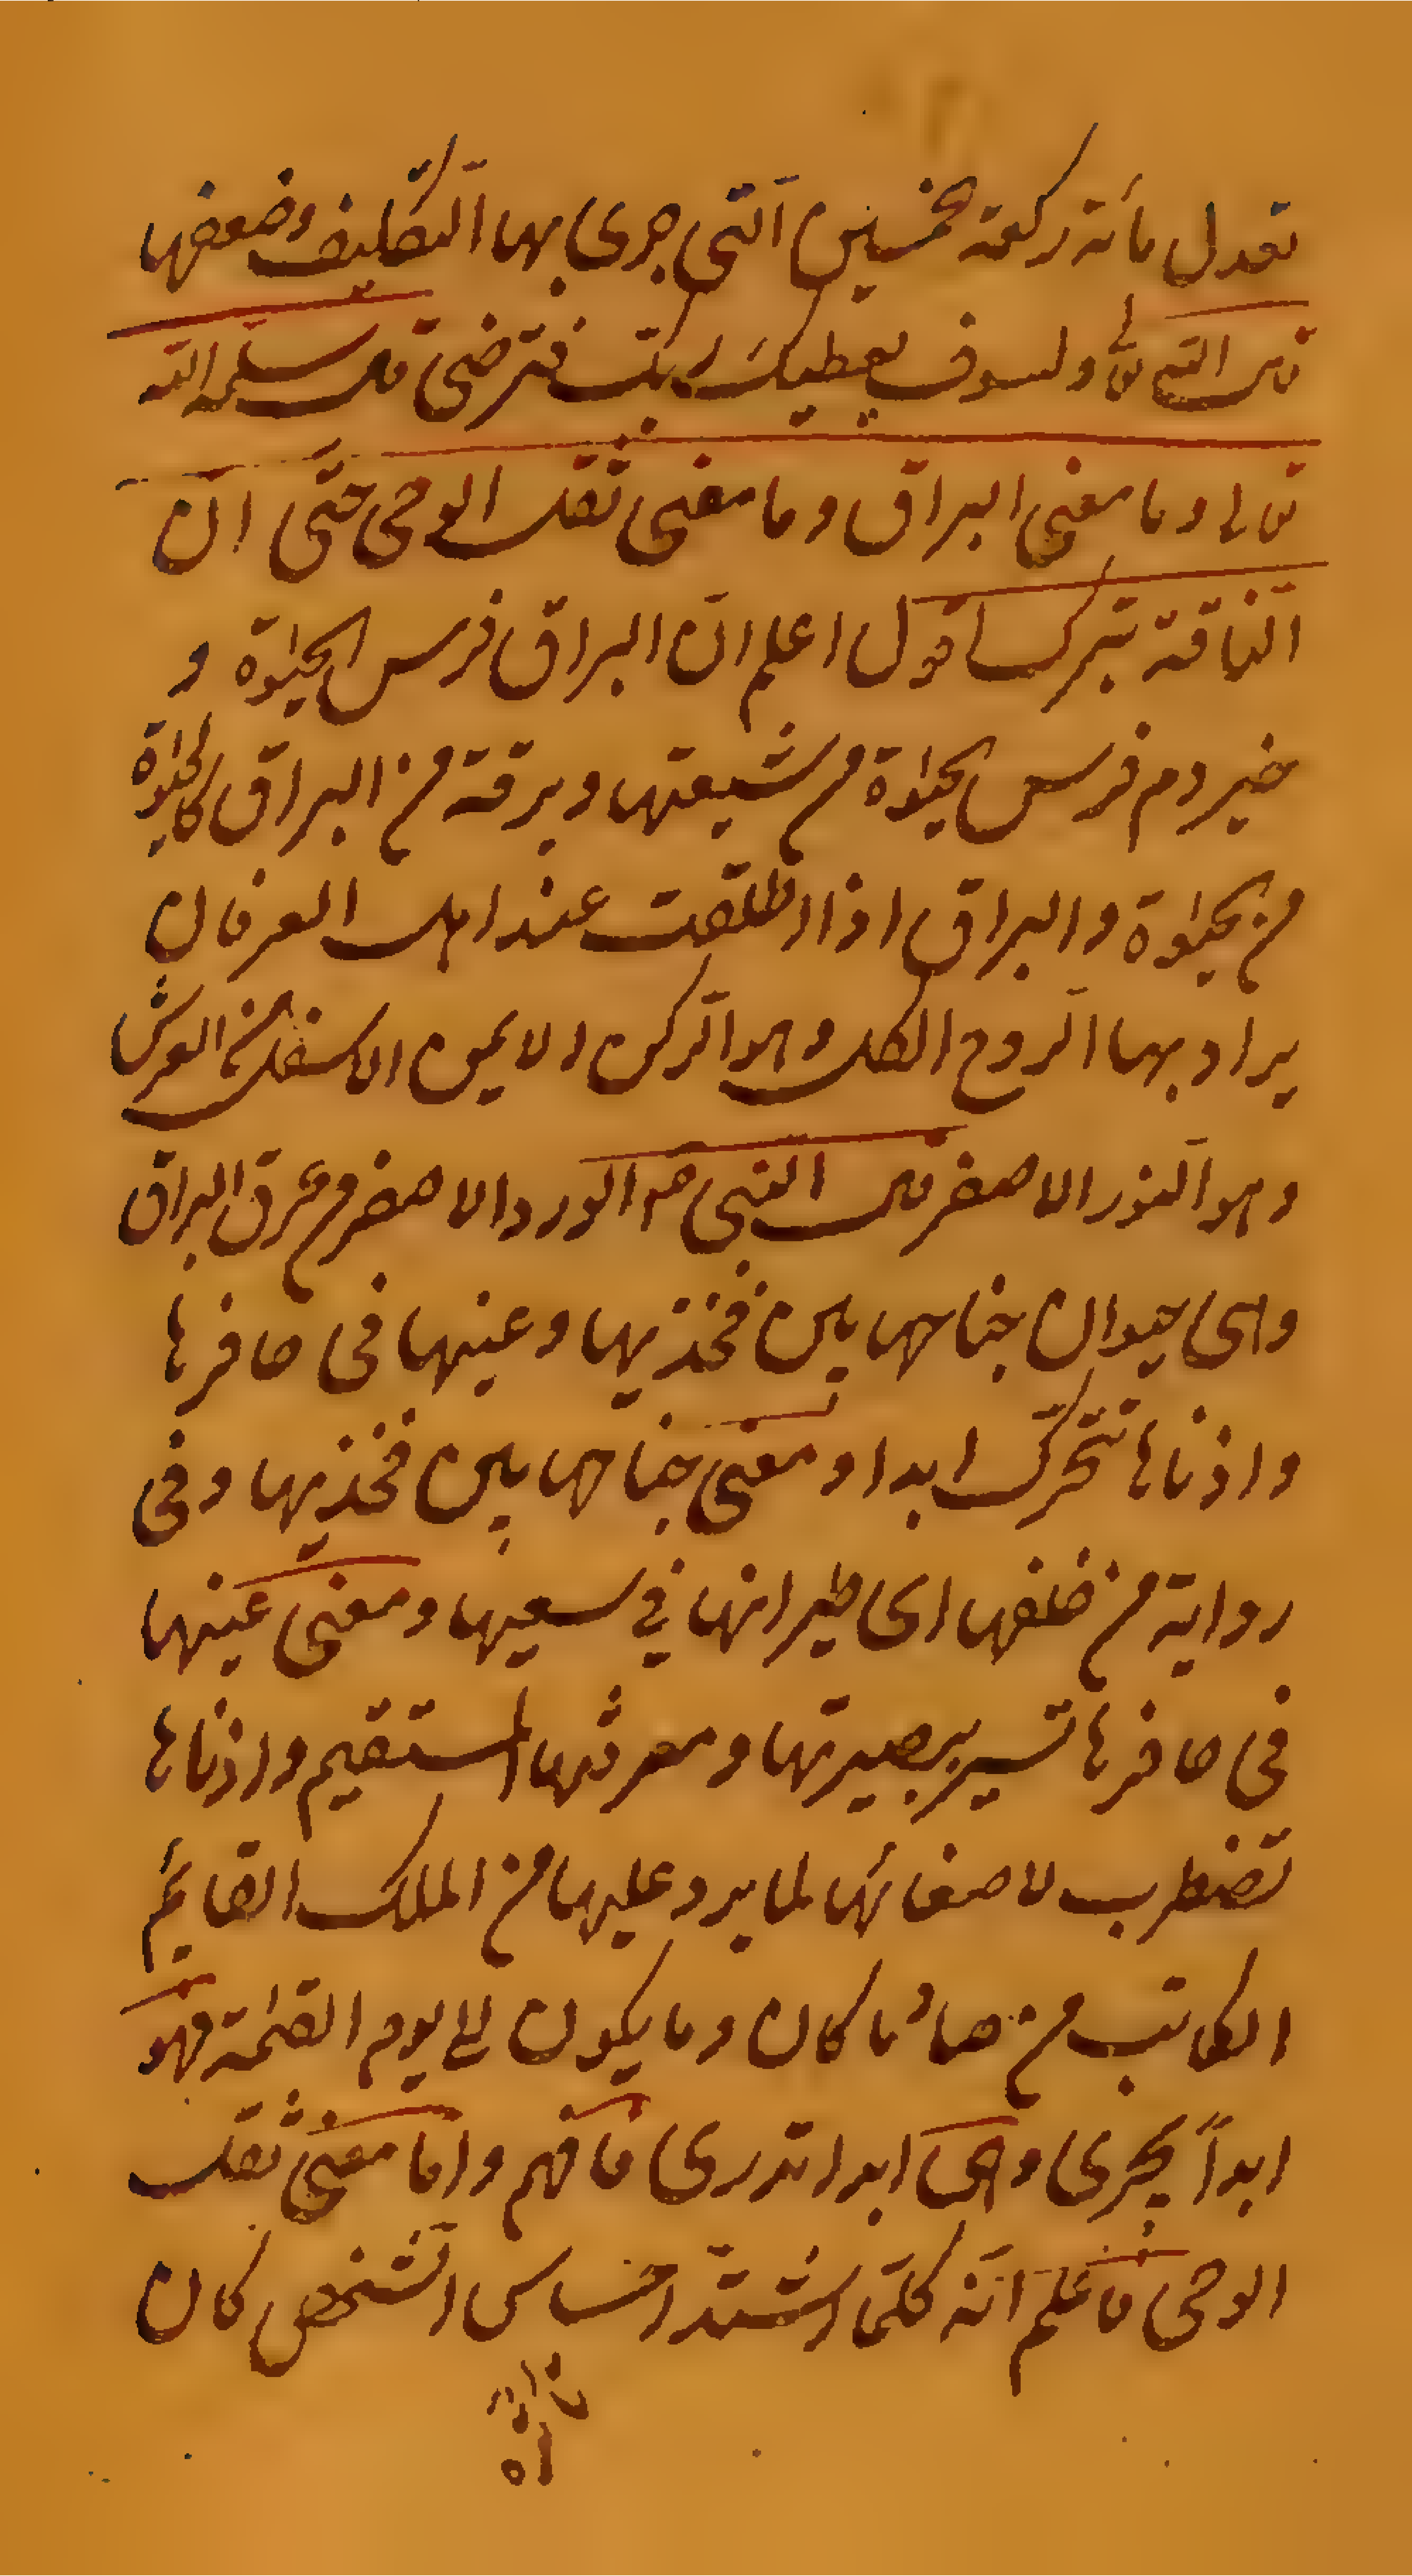 تعدل مأته ركعة لخمسين الّتى جرى بها التّكليف وضعفها
قال الله تعالى ولسوف يعطيكَ ربك فترضى قال سلمه الله
تعالى وما معنى البراق وما معنى ثقل الوحى حتّى انّ
النّاقة تبرك اقول اعلم انّ البراق فرس الحيٰوة و
حيزوم فرس الحيٰوة من شيعتها وبرقة من البراق كالحيٰوة
من الحيٰوة والبراق اذا اطلقت عند اهل العرفان
يراد بها الرّوح الكل وهو الرّكن الايمن الاسفل من العرش
وهو النّور الاصفر قال النبى ص الورد الاصفر من عرق البراق
وهى حيوان جناحها بين فخذيها وعينها فى حافرها
واذناها تتحرّك ابدا ومعنى جناحها بين فخذيها وفى
رواية من خلفها اى طيرانها في سعيها ومعنى عينها
فى حافرها تسير ببصيرتها ومعرفتها المستقيم واذناها
تضطرب لاصغائها لما يرد عليها من الملك القائم
الكاتب من ما كان وما يكون الى يوم القيٰمة فهو
ابداً يجرى وهى ابدا تدرى فافهم وامّا معنى ثقل
الوحى فاعلم انّه كلّما اشتدّ احساس الشّخص كان